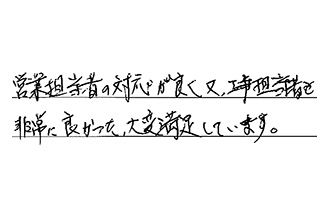 営業担当者の対応が良く又、工事担当者も
非常に良かった、大変満足しています。